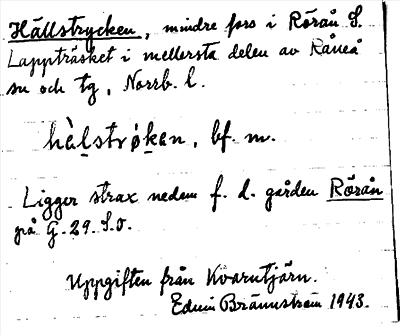 Hällstrycken, mindre fors i Rörån S.
Lappträsket i mellersta delen av Råneå
sn och tg, Norrb. l.
hàlstrøken, bf. m.
Ligger strax nedom f. d. gården Rörån
på G. 29. S.O.
Uppgiften från Kvarntjärn.
Edvin Brännström 1943.